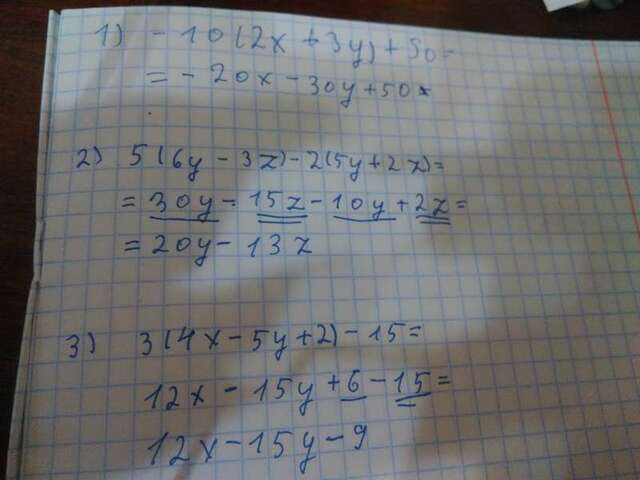 1) - 10(2x + 3y) + 50 =
= - 20x - 30y + 50x
2) 5(6y - 3z) - 2(5y + 2z) =
= 30y - 15z - 10y + 2z =
= 20y - 13z
3) 3(4x - 5y + 2) - 15 =
12x - 15y + 6 - 15 =
12x - 15y - 9